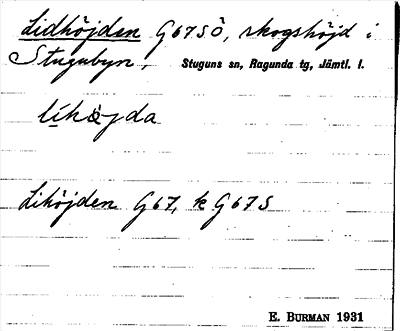 Lidhöjden G67SÖ, skogshöjd i
Stugubyn, Stuguns sn, Ragunda tg, Jämtl. l.
líhöjda
Lihöjden G67, k G67S
E. BURMAN 1931